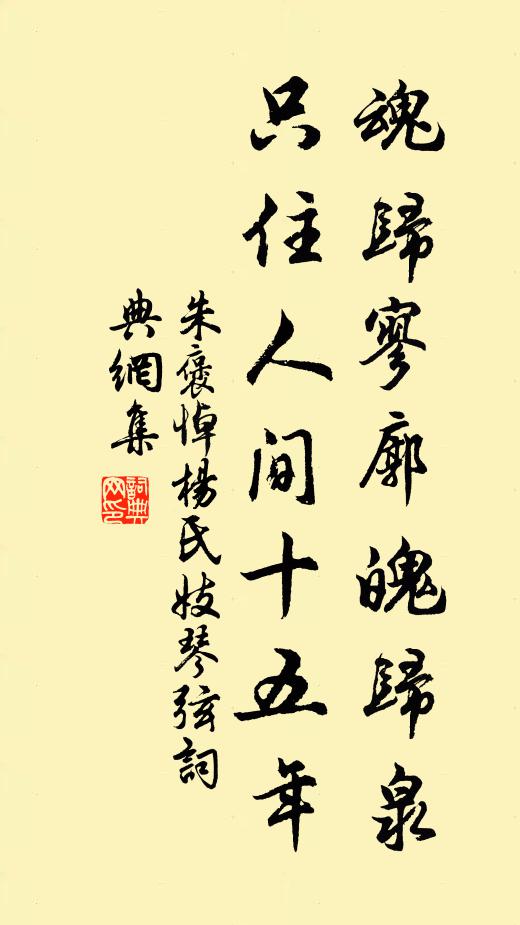 魂歸寥廓魄歸泉
只住人間十五年
朱褒悼楊氏妓琴弦詞
典網集
詞典
网印